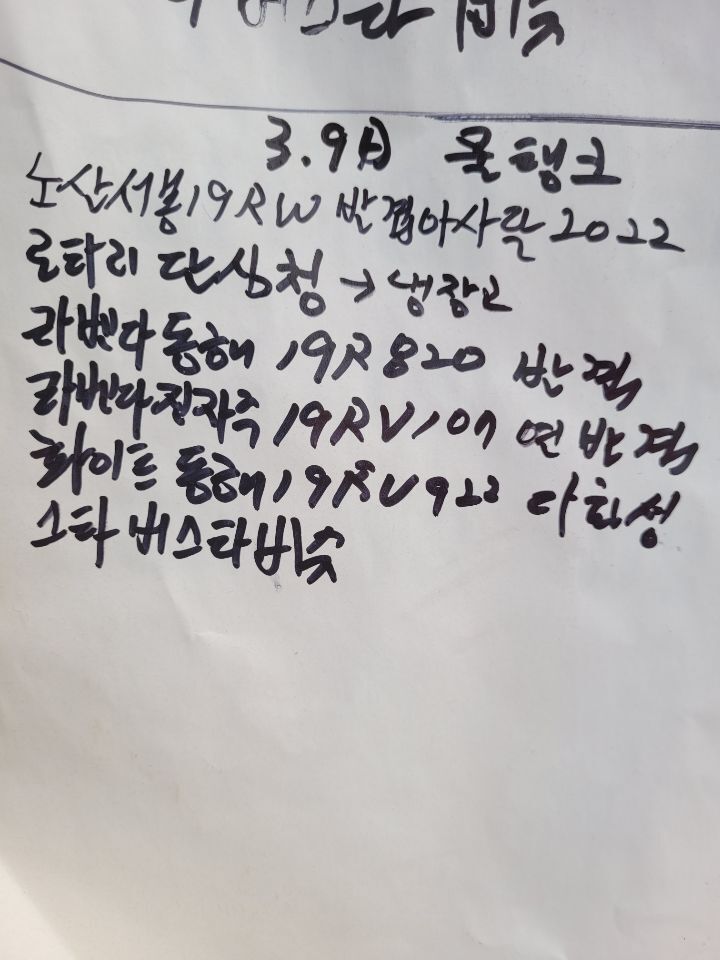 버스타 비숏
3.9日 물탱크
노산서봉19RW 반겹아사달2022
로타리 단심청 → 냉장고
라벤다동해 19R820 반겹
라벤다진자주 19RV107 연반겹
화이트동해19RV922 다화성
스타버스타비숏